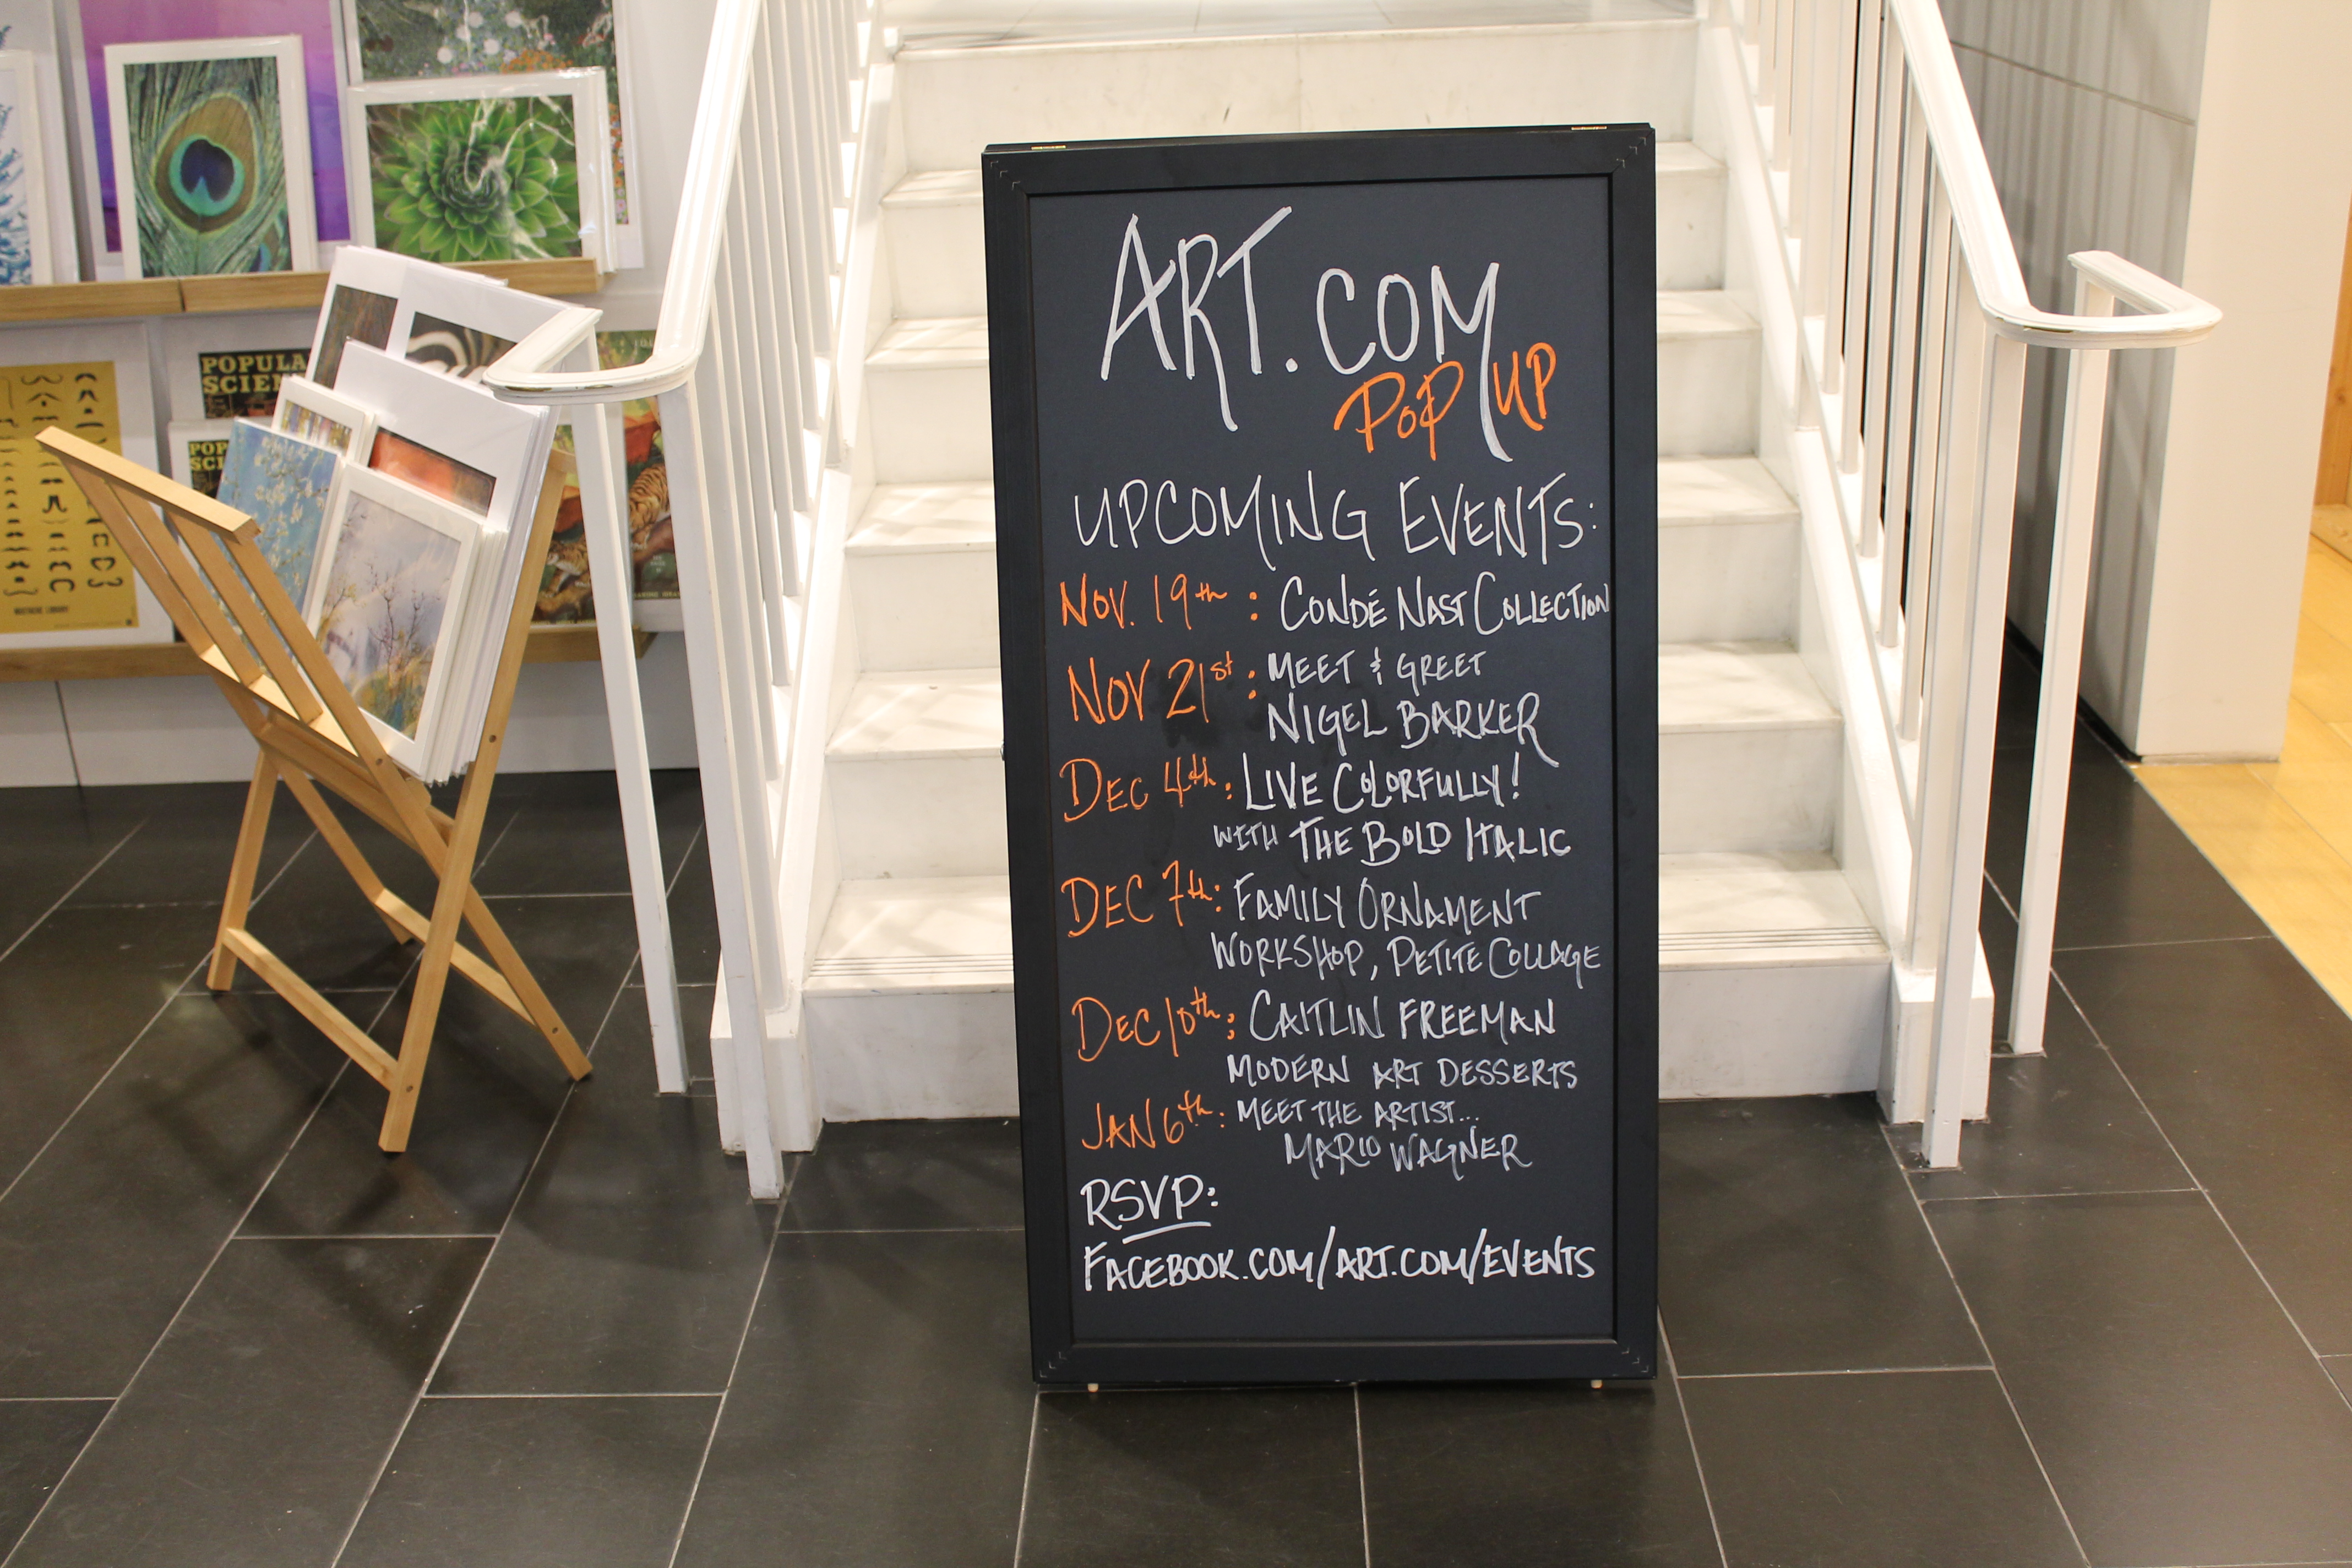 ART.COM
POP UP
UPCOMING EVENTS:
NOV. 19th : CONDÉ NAST COLLECTION
NOV 21st : MEET & GREET
NIGEL BARKER
DEC 4th : LIVE COLORFULLY!
WITH THE BOLD ITALIC
DEC 7th : FAMILY ORNAMENT
WORKSHOP, PETITE COLLAGE
DEC 10th : CAITLIN FREEMAN
MODERN ART DESSERTS
JAN 6th : MEET THE ARTIST...
MARIO WAGNER
RSVP:
FACEBOOK.COM/ART.COM/EVENTS
POPULA
SCIEN
POP
SCI